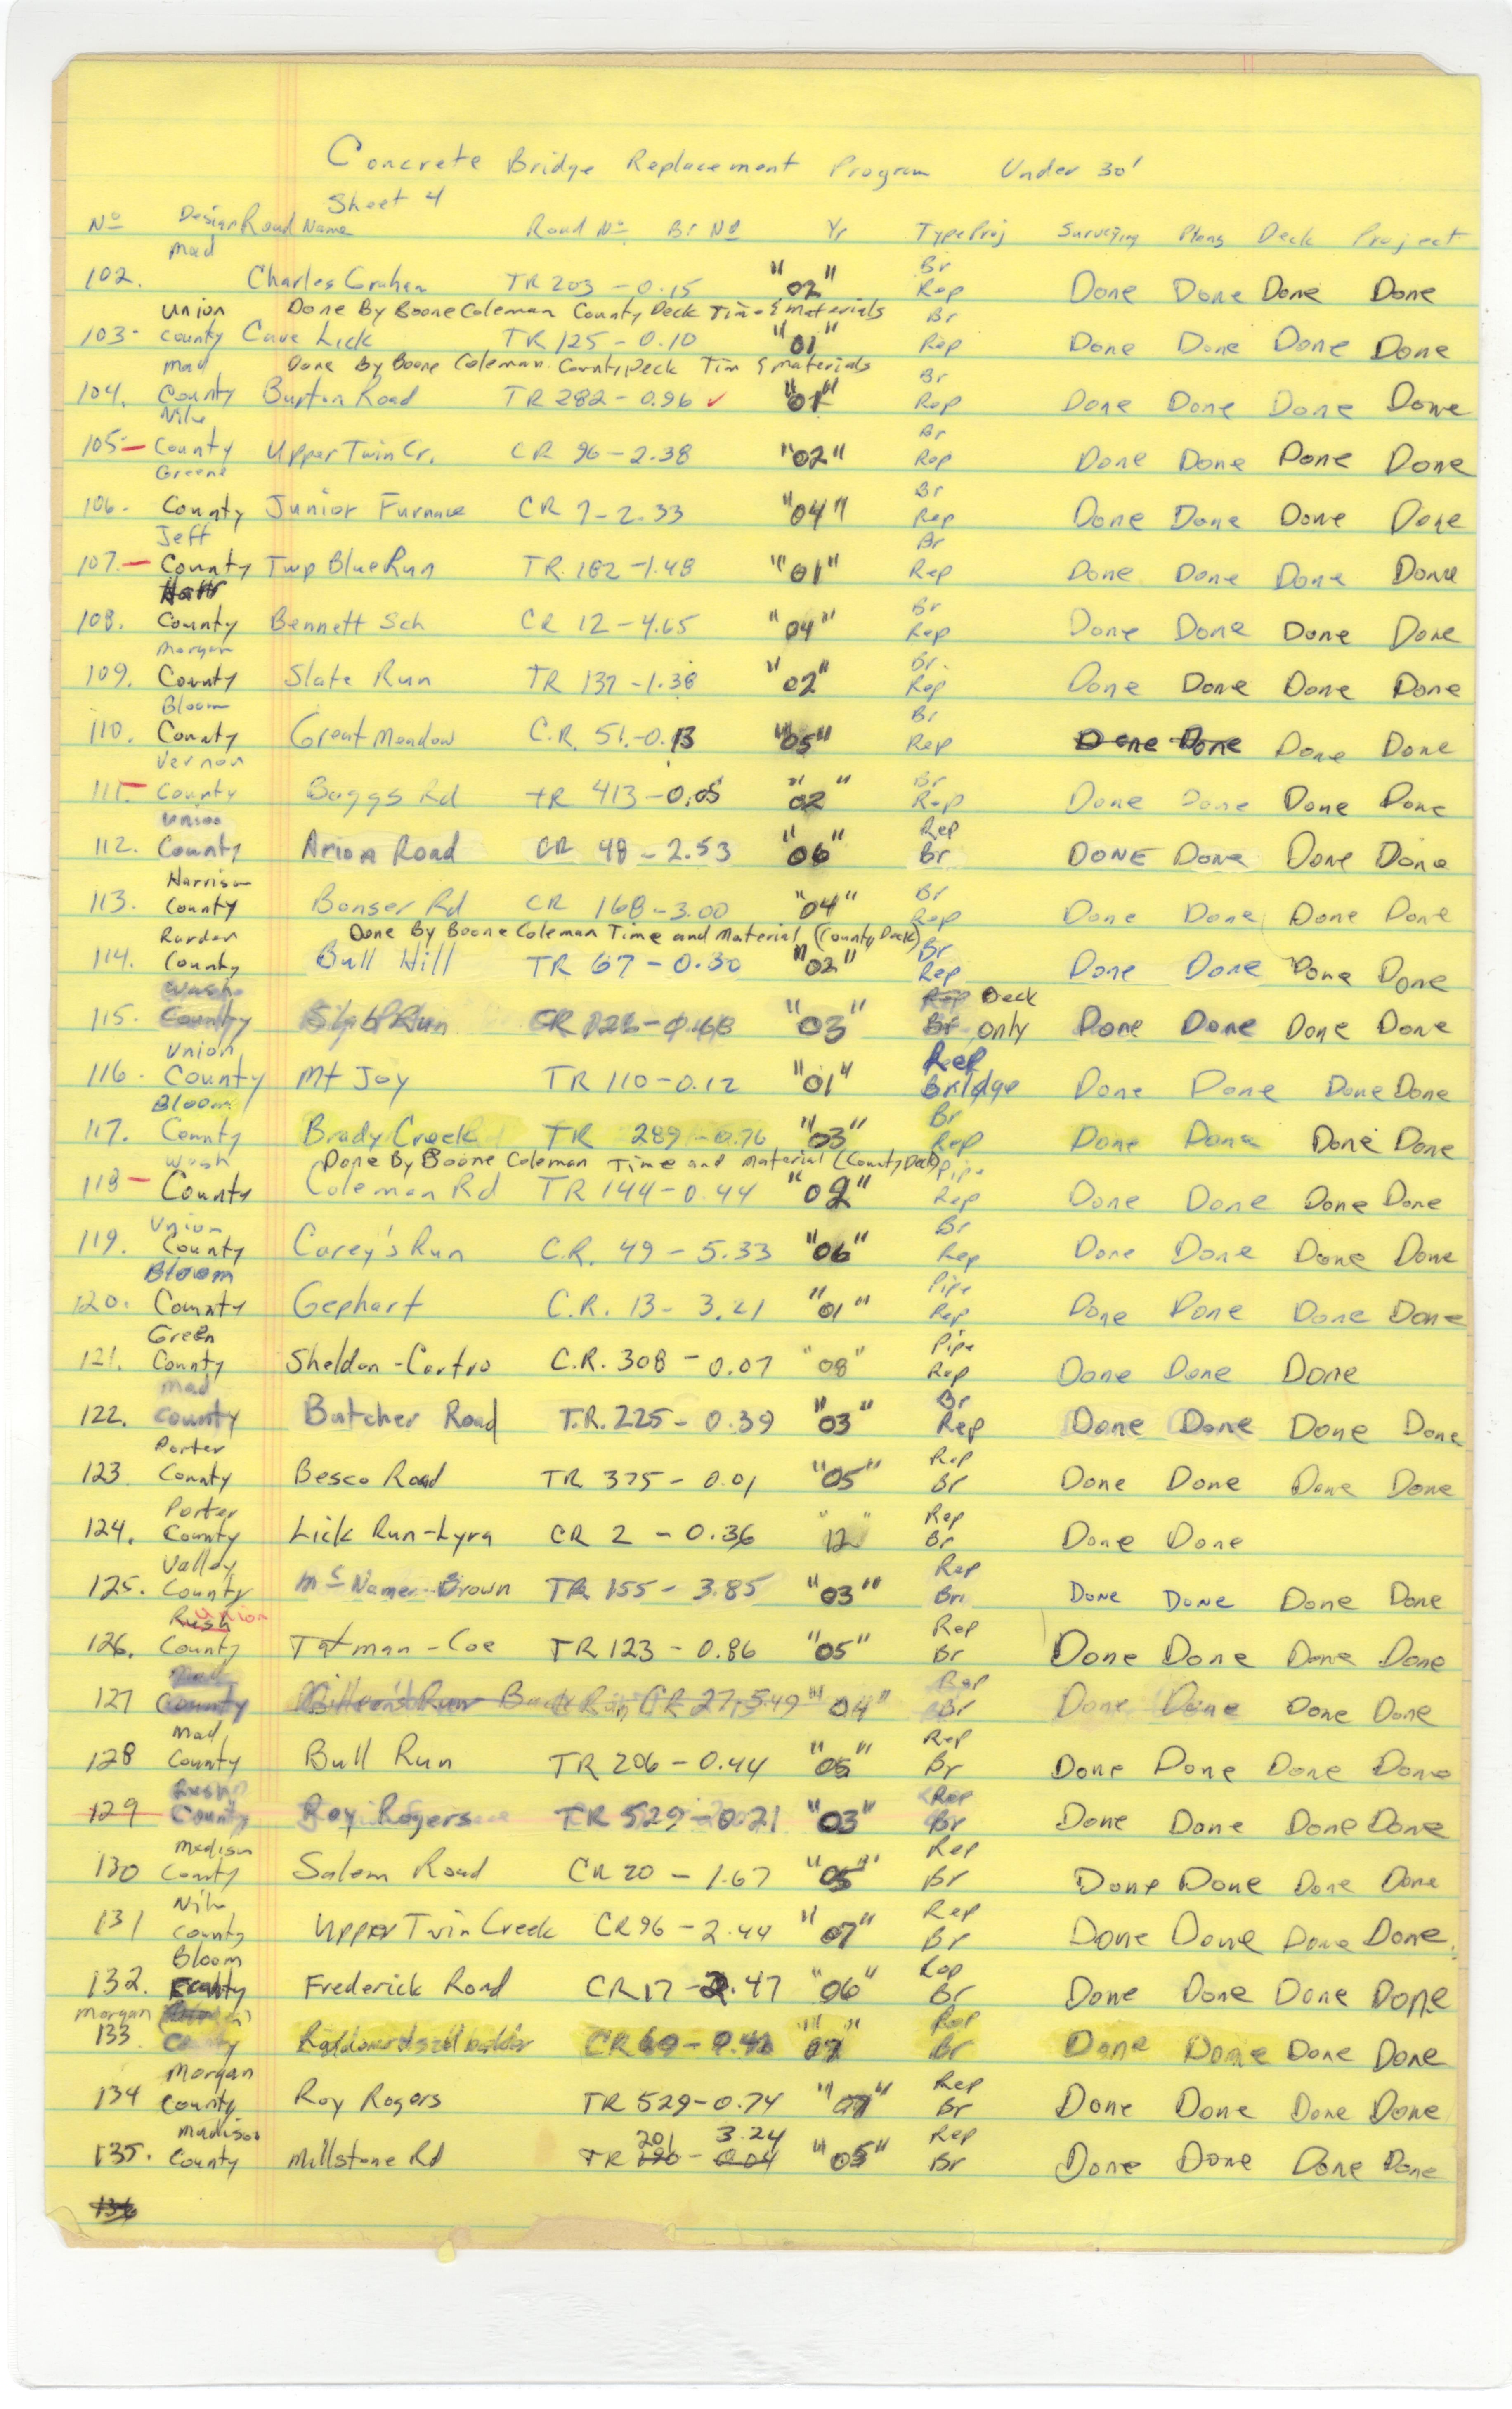 Concrete Bridge Replacement Program Under 30'
Sheet 4
Nº Design Road Name Road Nº Br Nº Yr Type Proj Surveying Plans Deck Project
Mad Br
102. Charles Graham TR 203 - 0.15 "02" Rep Done Done Done Done
Union Done By Boone Coleman County Deck Time & Materials Br
103- County Cave Lick TR 125 - 0.10 "01" Rep Done Done Done Done
Mad Done By Boone Coleman County Deck Tim & Materials Br
104. County Burton Road TR 282 - 0.96 ✓ "01" Rep Done Done Done Done
Nile Br
105- County Upper Twin Cr. CR 96 - 2.38 "02" Rep Done Done Done Done
Greene Br
106- County Junior Furnace CR 7 - 2.33 "04" Rep Done Done Done Done
Jeff Br
107. County Twp Blue Run TR. 182 - 1.48 "01" Rep Done Done Done Done
Harr Br
108. County Bennett Sch CR 12 - 4.65 "04" Rep Done Done Done Done
Morgan Br.
109. County Slate Run TR 137 - 1.38 "02" Rep Done Done Done Done
Bloom Br
110. County Great Meadow C.R. 51. - 0.13 "05" Rep Done Done Done Done
Vernon Br
111- County Boggs Rd TR 413 - 0.05 "02" Rep Done Done Done Done
Union Rep
112. County Arion Road CR 48 - 2.53 "06" Br DONE Done Done Done
Harrison Br
113. County Bonser Rd CR 168 - 3.00 "04" Rep Done Done Done Done
Rarden Done By Boone Coleman Time and Material (County Deck) Br
114. County Bull Hill TR 67 - 0.30 "02" Rep Done Done Done Done
Wash Rep Deck
115. County Run CR "03" Br only Done Done Done Done
Union Rep
116- County Mt Joy TR 110 - 0.12 "01" Bridge Done Done Done Done
Bloom Br
117. County Brady Creek TR 289 - 0.76 "03" Rep Done Done Done Done
Wash Done By Boone Coleman Time and Material (County Deck) Pipe
118 - County Coleman Rd TR 144 - 0.44 "02" Rep Done Done Done Done
Union Br
119. County Carey's Run C.R. 49 - 5.33 "06" Rep Done Done Done Done
Bloom Pipe
120. County Gephart C.R. 13 - 3.21 "01" Rep Done Done Done Done
Green Pipe
121. County Sheldon - Cartro C.R. 308 - 0.07 "08" Rep Done Done Done
Mad Br
122. County Butcher Road T.R. 225 - 0.39 "03" Rep Done Done Done Done
Porter Rep
123. County Besco Road TR 375 - 0.01 "05" Br Done Done Done Done
Porter Rep
124. County Lick Run - Lyra CR 2 - 0.36 "12" Br Done Done
Valley Rep
125. County McNamer - Brown TR 155 - 3.85 "03" Br. DONE DONE Done Done
Rush Union Rep
126. County Tatman - Coe TR 123 - 0.86 "05" Br Done Done Done Done
Rep
127 County Run CR 27 5.49 "04" Br Done Done Done Done
Mad Rep
128 County Bull Run TR 206 - 0.44 "05" Br Done Done Done Done
Rush Rep
129 County Roy Rogers TR 529 - 0.21 "03" Br Done Done Done Done
Madison Rep
130 County Salem Road CR 20 - 1.67 "05" Br Done Done Done Done
Nile Rep
131 County Upper Twin Creek CR 96 - 2.44 "07" Br Done Done Done Done.
Bloom Rep
132. County Frederick Road CR 17 - 2.47 "06" Br Done Done Done Done
Morgan Rep
133. County CR "07" Br Done Done Done Done
Morgan Rep
134 County Roy Rogers TR 529 - 0.74 "07" Br Done Done Done Done
Madison 201 3.24 Rep
135. County Millstone Rd TR 190 - 0.04 "05" Br Done Done Done Done
136